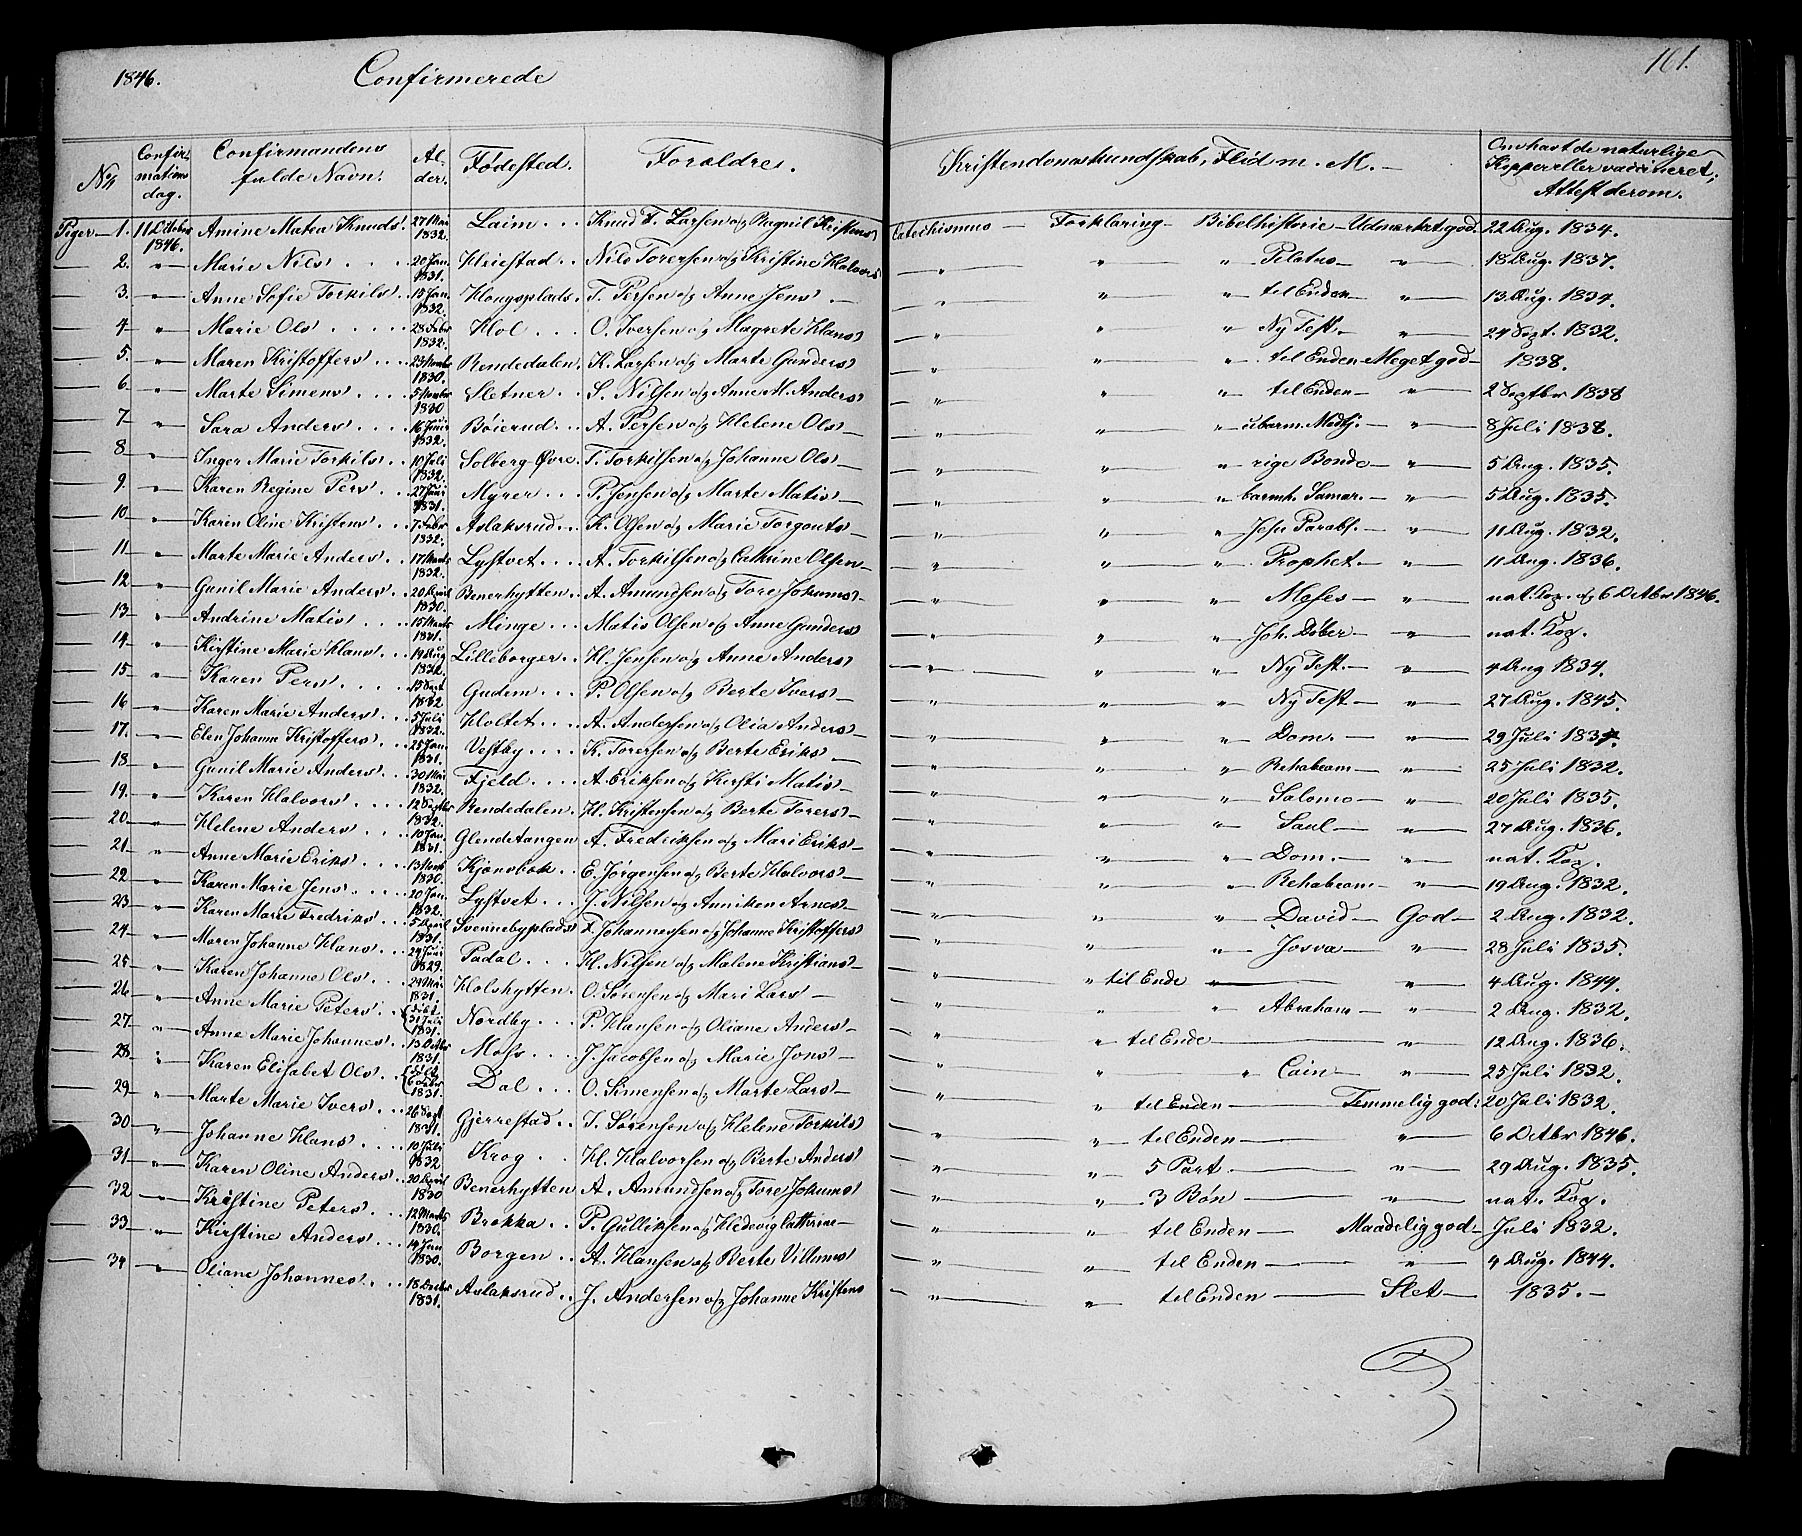 1846. Confirmerede 161.
No Confirmations dag. Confirmandens fulde Navn. Alder. Fødested. Forældre. Kristendomskundskab, Flid m. M. Om havt de naturlige Kopper eller vaccineret; Attest derom.
Piger 1. 11 October 1846. Amine Matea Knuds. 27 Mai 1832. Laim Knud F. Larsen og Ragnil Kristens Catechismus Forklaring Bibelhistorie Udmærket god. 22 Aug. 1834.
2. " Marie Nils 20 Jan. 1831. Hriestad Nils Torersen og Kristine Halvors " " " Pilatus " 18 Aug. 1837.
3. " Anne Sofie Torkils 15 Jan. 1832. Hougsplads T. Persen og Anne Jens " " " til Enden " 13 Aug. 1834.
4 " Marie Ols 28 Febr 1832. Hol O. Iversen og Magrete Hans " " " Ny Test " 24 Sept. 1832.
5. " Maren Kristoffers 23 Novbr 1830. Rendedalen K. Larsen og Marte Gunders " " " til Enden Meget god 1838.
6 " Marte Simens 5 Novbr 1830 Sletner S. Nilsen og Anne M. Anders " " " til Enden " 2 Septbr 1838
7 " Sara Anders 16 Juni 1832. Bøierud A. Persen og Helene Ols " " " ubarm. Medtj. " 8 Juli 1838.
8 " Inger Marie Torkils 10 Juli 1832. Solberg Øvre T. Torkilsen og Johanne Ols " " " rige Bonde " 5 Aug. 1835.
9. " Karen Regine Pers 27 Juni 1831. Myrer P. Jensen og Marte Matis " " " barmh. Samar. " 5 Aug. 1835.
10. " Karen Oline Kristens 7 Febr 1832. Aslaksrud K. Olsen og Marie Torgouts " " " Jesu Parabl. " 11 Aug. 1832.
11. " Marte Marie Anders 17 Marts 1832. Lystvet A. Torkilsen og Cathrine Olsen " " " Prophet. " 11 Aug. 1836.
12 " Gunil Marie Anders 20 April 1830. Benerhytten A. Amundsen og Tore Jokums " " " Moses " nat. Kop. og 6 Octbr 1846.
13 " Andrine Matis 15 Marts 1831. Minge Matis Olsen og Anne Gunders " " " Joh. Døber " nat. Kop.
14 " Kirstine Marie Hans 19 Aug 1832. Lilleborger H. Jensen og Anne Anders " " " Ny Test. " 4 Aug 1834.
15 " Karen Pers 15 Sept 1832 Gudem P. Olsen og Berte Ivers " " " Ny Test " 27 Aug. 1845.
16 " Karen Marie Anders 5 Juli 1832. Holtet A. Andersen og Olia Anders " " " Dom. " 29 Juli 1837.
17. " Elen Johanne Kristoffers 25 Jan. 1831. Vestby K. Torersen og Berte Eriks " " " Rehabeam " 25 Juli 1832.
18 " Gunil Marie Anders 30 Mai 1832. Fjeld A. Eriksen og Kirsti Matis " " " Salomo " 20 Juli 1835.
19. " Karen Halvors 12 Septbr 1832. Rendedalen H. Kristensen og Berte Torers " " " Saul " 27 Aug. 1836.
20 " Helene Anders 10 Jan. 1831. Glendetangen A. Fredriksen og Mari Eriks " " " Dom. " nat. Kop.
21 " Anne Marie Eriks 13 Marts 1830. Kjønsbok E. Jørgensen og Berte Halvors " " " Rehabeam " 19 Aug. 1832.
22 " Karen Marie Jens 20 Jan. 1832. Lystvet J. Nilsen og Anniken Arnes " " " David God 2 Aug. 1832.
23 " Karen Marie Fredriks 5 April 1831. Svennebyplads F. Johannessen og Johanne Kristoffers " " " Josva " 28 Juli 1835.
24 " Maren Johanne Hans 24 Juni 1829. Padal H. Nilsen og Malene Kristians " " " til Ende " 4 Aug. 1844.
25 " Karen Johanne Ols 29 Mai 1831. Holshytten O. Sørensen og Mari Lars " " " Abraham " 2 Aug. 1832.
26 " Anne Marie Peters døbt 31 Juli 1831. Nordby P. Hansen og Oliane Anders " " til Ende " 12 Aug. 1836.
27 " Anne Marie Johannes 13 Octbr 1831. Moss J. Jacobsen og Marie Jons " " " Cain " 25 Juli 1832.
28 " Karen Elisabet Ols døbt 1831. Dal O. Simensen og Marte Lars " " til Enden Temmelig god: 20 Juli 1832.
29 " Marte Marie Ivers 26 Sept 1831. Gjerrestad I. Sørensen og Helene Torkils " " til Enden " 6 Octbr 1846.
30 " Johanne Hans 10 Juli 1832 Krog H. Halvorsen og Berte Anders " " 5 Part " 29 Aug. 1835.
31 " Karen Oline Anders 20 April 1830 Benerhytten A. Amundsen og Tore Jokums " " 3 Bøn " nat. Kop.
32 " Kristine Peters 12 Marts 1830. Brokka P. Gulliksen og Hedevig Cathrine " " til Enden Maadelig god Juli 1832.
33 " Kirstine Anders 14 Jan 1830. Borgen A. Hansen og Berte Villums " " til Enden " 4 Aug. 1844.
34 " Oliane Johannes 18 Decbr 1831. Aslaksrud J. Andersen og Johanne Kristens " " til Enden Slet 1835.